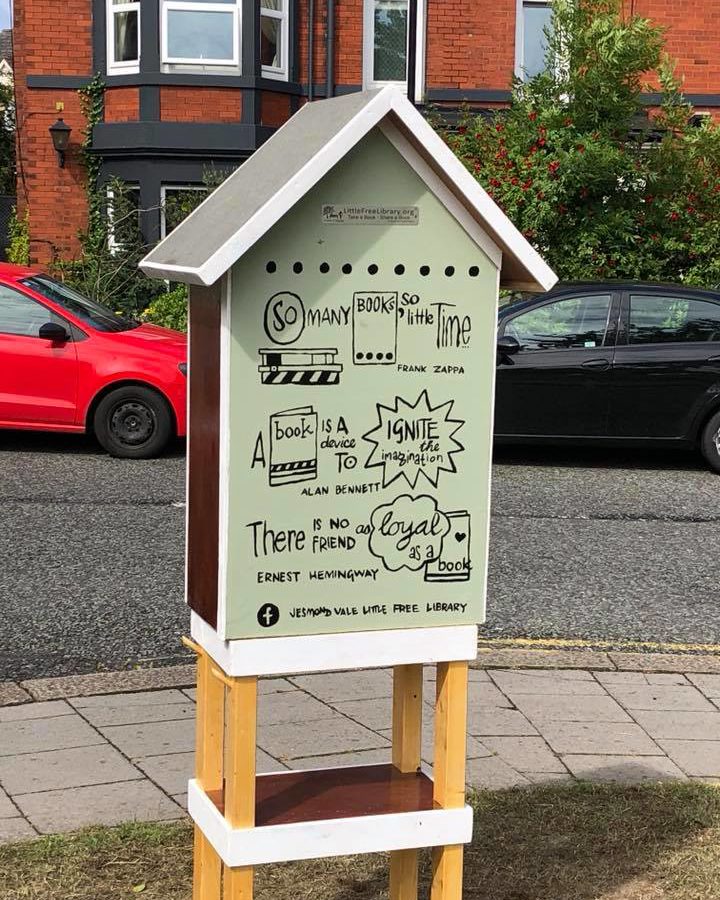 LittleFreeLibrary.org
Take a Book • Share a Book
SO MANY BOOKS, SO little Time...
FRANK ZAPPA
A book IS A device TO IGNITE the imagination
ALAN BENNETT
There IS NO FRIEND as loyal as a book
ERNEST HEMINGWAY
f JESMOND VALE LITTLE FREE LIBRARY